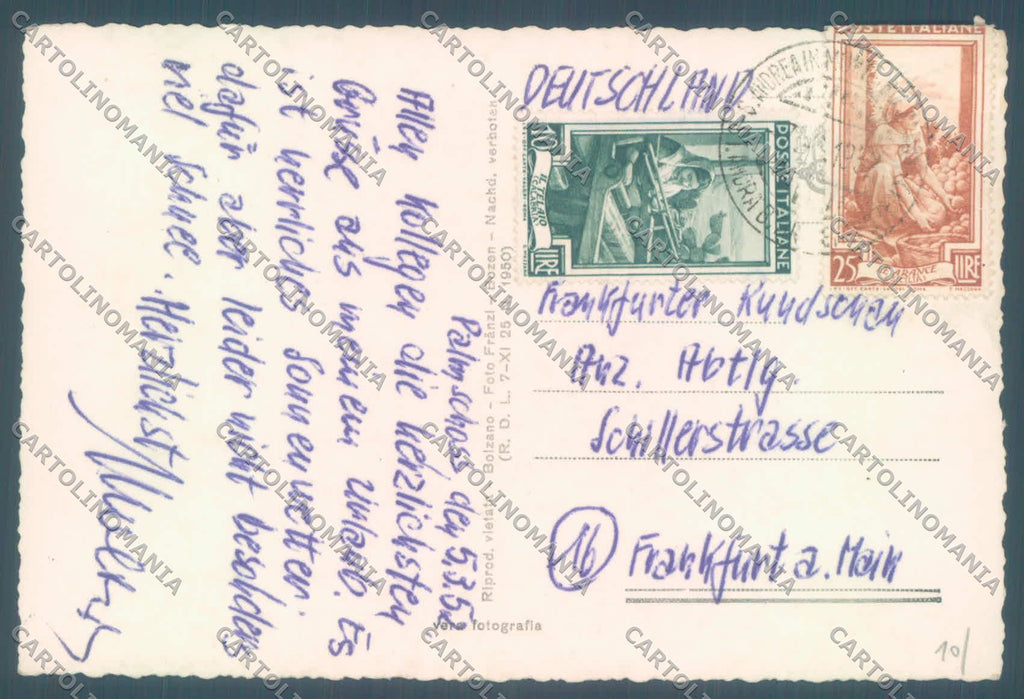 DEUTSCHLAND
Palmschoss den 5.3.52
Allen Kollegen die herzlichsten
Grüße aus meinem Urlaub. Es
ist herrliches Sonnenwetter.
dafür aber leider nicht besonders
viel Schnee. Herzlichst
Frankfurter Rundschau
Anz. Abtlg.
Schillerstrasse
16 Frankfurt a. Main
Riprod. vietata Bolzano - Foto Fränzl - Bozen - Nachd. verboten
(R. D. L. 7-XI 25 1950)
vera fotografia
POSTE ITALIANE
10 LIRE
POSTE ITALIANE
25 LIRE
10/
CARTOLINOMANIA